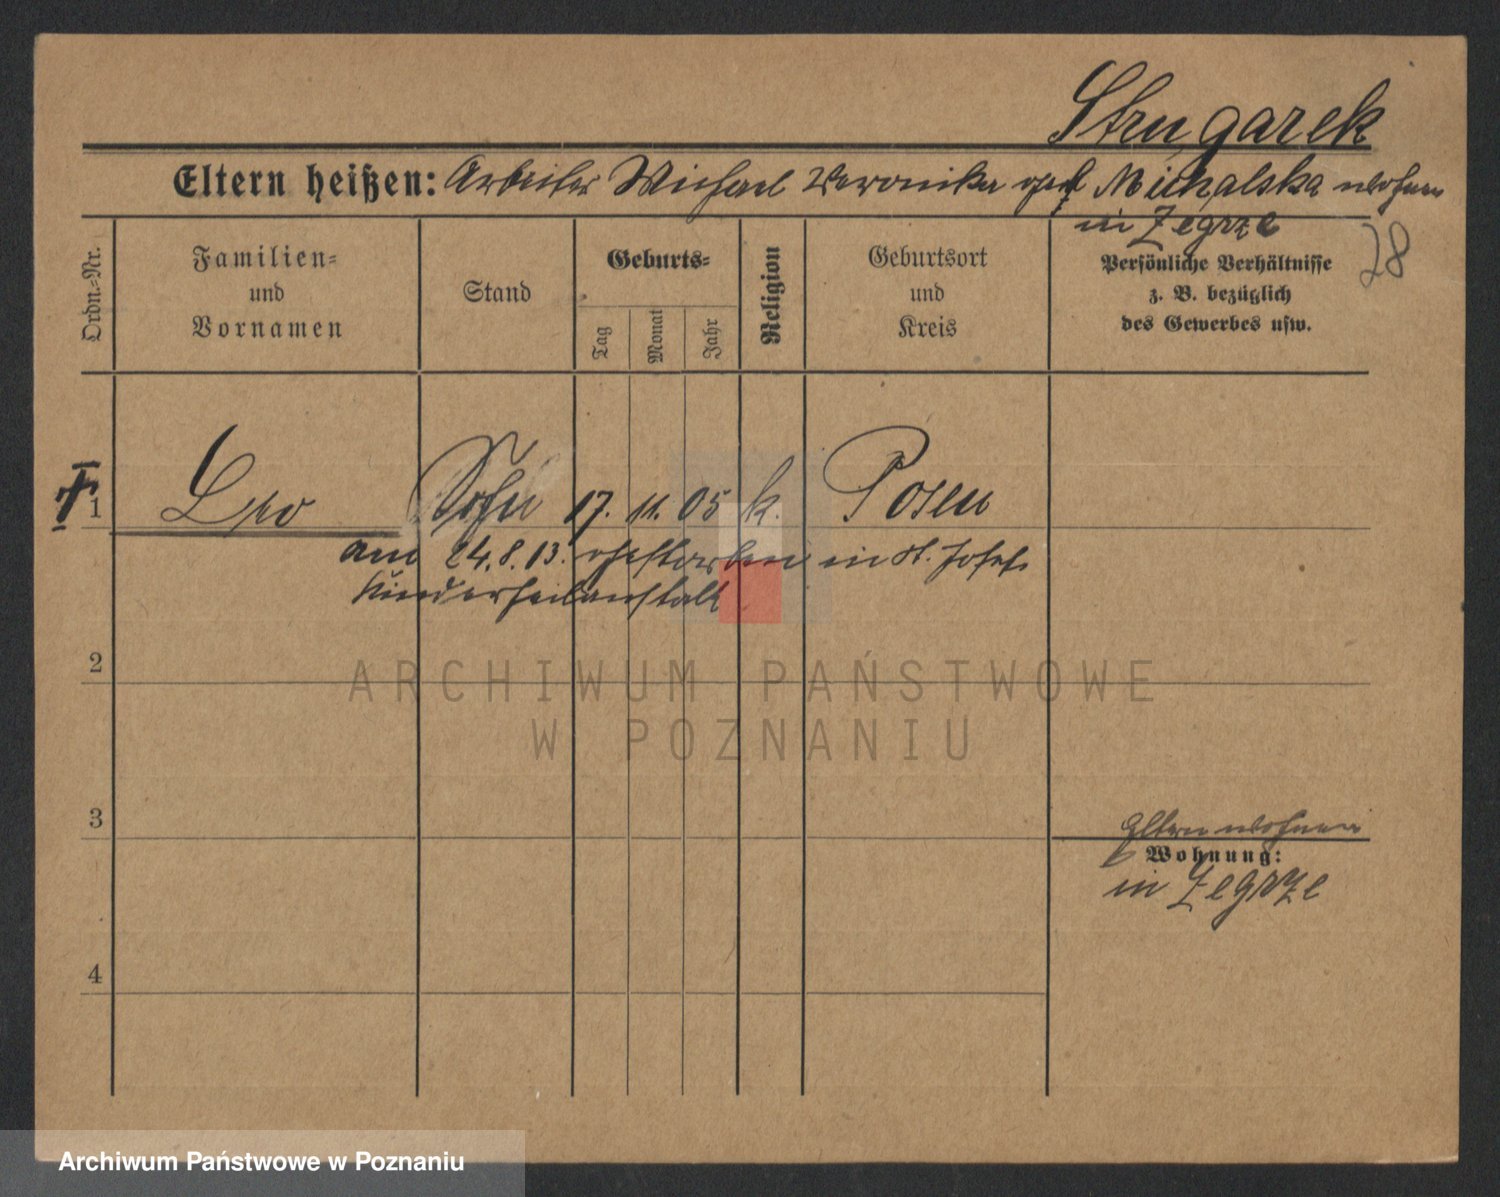 Strugarek
Eltern heißen: Arbeiter Michael Veronika geb Michalska wohnen
in Zegrze
28
Ordn.-Nr.
Familien-
und
Vornamen
Stand
Geburts-
Tag
Monat
Jahr
Religion
Geburtsort
und
Kreis
Persönliche Verhältnisse
z. B. bezüglich
des Gewerbes usw.
1 Leo Sohn 17. 11. 05 k. Posen
am 24.8.13. gestorben in St. Josef
Kinderheilanstalt
2
ARCHIWUM PAŃSTWOWE
W POZNANIU
3
Eltern wohnen
Wohnung:
in Zegrze
4
Archiwum Państwowe w Poznaniu